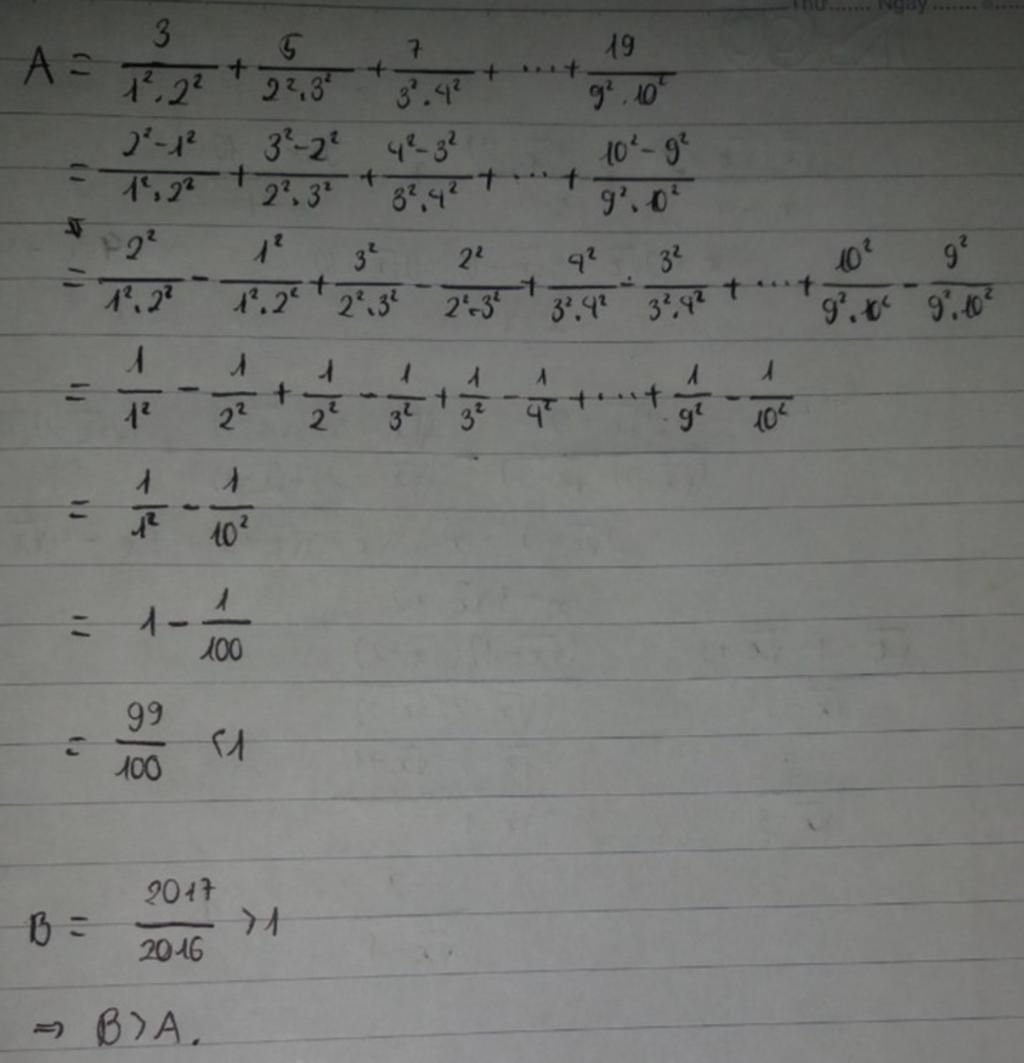 Thứ....... Ngày.......
A = 3/(1².2²) + 5/(2².3²) + 7/(3².4²) + ... + 19/(9².10²)
= (2²-1²)/(1².2²) + (3²-2²)/(2².3²) + (4²-3²)/(3².4²) + ... + (10²-9²)/(9².10²)
= 2²/(1².2²) - 1²/(1².2²) + 3²/(2².3²) - 2²/(2².3²) + 4²/(3².4²) - 3²/(3².4²) + ... + 10²/(9².10²) - 9²/(9².10²)
= 1/1² - 1/2² + 1/2² - 1/3² + 1/3² - 1/4² + ... + 1/9² - 1/10²
= 1/1² - 1/10²
= 1 - 1/100
= 99/100 < 1
B = 2017/2016 > 1
⇒ B > A.